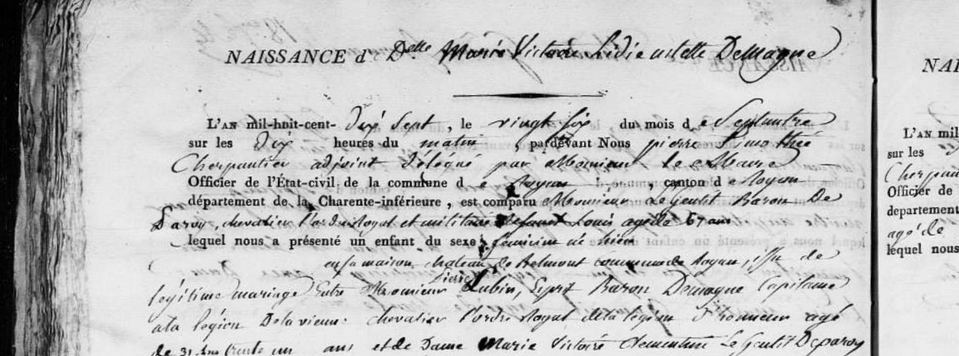 NAISSANCE d' Delle Marie Victoire Lidie Demagne
L'AN mil-huit-cent- dix sept, le vingt six du mois de Septembre
sur les dix heures du matin, pardevant Nous pierre Timothé
Cherpantier adjoint délégué par Monsieur le Maire
Officier de l'État-civil de la commune de Royan, canton de Royan
département de la Charente-inférieure, est comparu Monsieur Le Gentil Baron De
Paroy, chevalier l'ordre Royal et militaire de saint Louis agé de 67 ans
lequel nous a présenté un enfant du sexe féminin né hier
en sa maison, chateau de Belmont commune de Royan, issu de
légitime mariage Entre Monsieur pierre Lubin, Esprit Baron Demagne Capitaine
a la légion De la vienne chevalier l'ordre Royal de la légion d'honneur agé
de 31 ans trente un ans et de Dame Marie Victoire clementine Le Gentil Deparoy
NAI
L'AN mil
sur les
Cherpan
Officier de
département
agé de
lequel nous